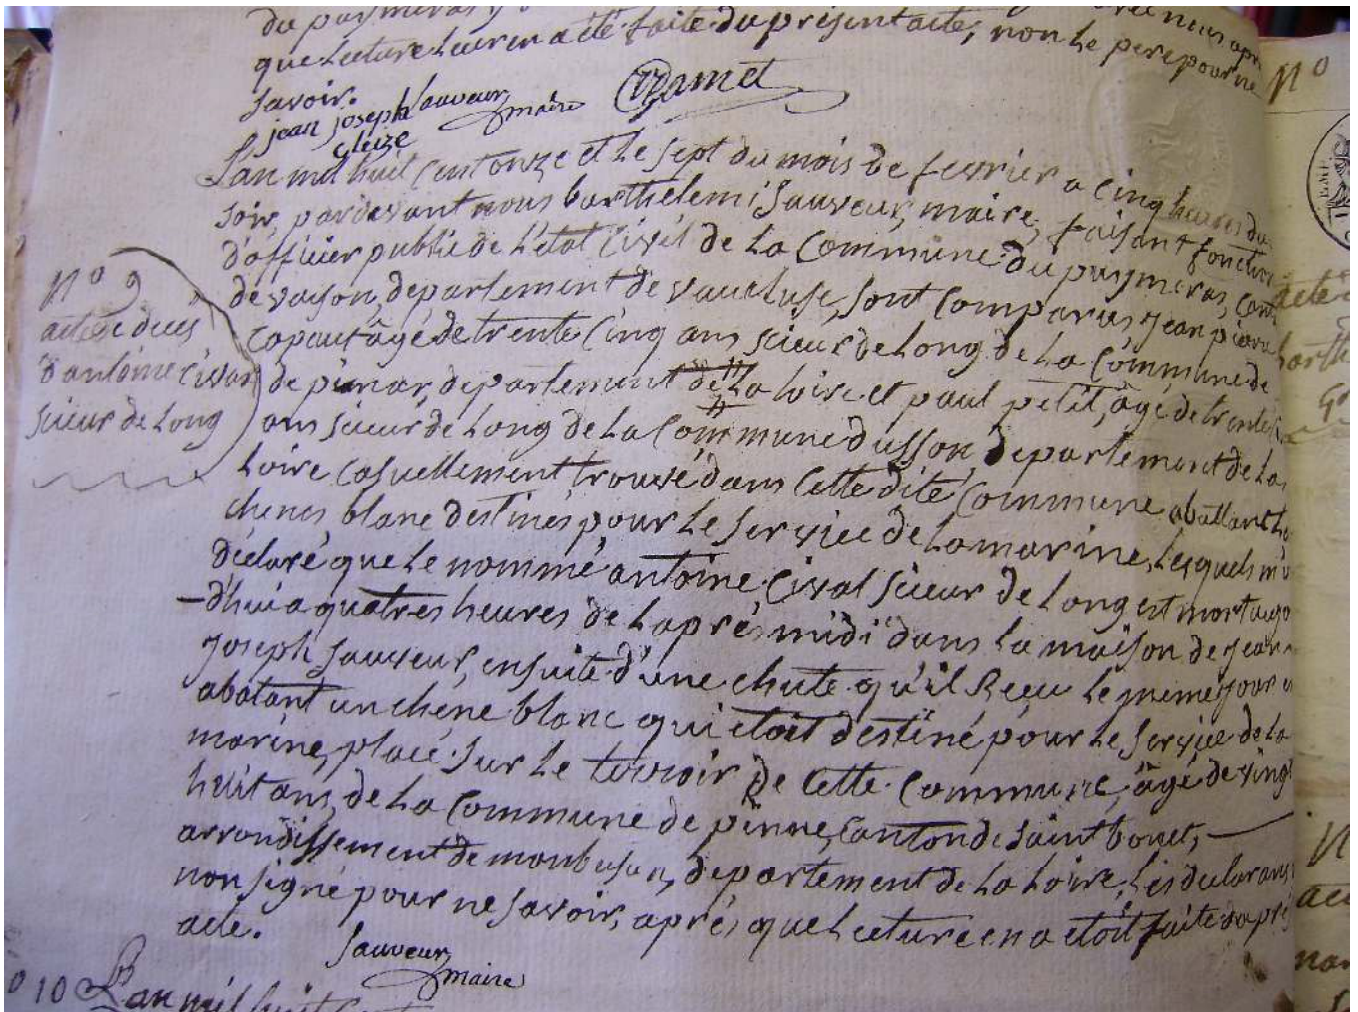 que lecture leur en a été faite du présent acte, non le pere pour ne
savoir.
jean joseph Sauveur maire Ramet
gleize
L'an mil huit cent onze et le sept du mois de fevrier a cinq heures du
soir, pardevant nous barthelemi Sauveur, maire, faisant fonction
d'officier public de l'état Civil de la Commune du puymeras, cant
de vaison, departement de vaucluse, sont comparus jean pierre
capaut âgé de trente Cinq ans scieur de Long de La Commune de
de pinnar, departement de La loire et paul petit, âgé de trente
ans scieur de Long de La Commune dusson, departement de La
Loire casuellement trouvé dans Cette dite Commune abattant
chenes blanc destinés pour le service de La marine, Lesquels m'
déclaré que le nommé antoine Cival scieur de Long est mort
-d'hui a quatres heures de L'aprés midi dans la maison de jean
joseph Sauveur, ensuite d'une chute qu'il Reçu le meme jour
abatant un chéne blanc qui etoit destiné pour le service de La
marine, placé sur le terroir de Cette Commune, âgé de vingt
huit ans, de La Commune de pinne, Canton de Saint bonet,
arrondissement de monbrison, departement de La Loire, Les declarans
non signé pour ne savoir, aprés que lecture en a étoit faite du
acte.
Sauveur
maire
N° 9
acte de deces
d'antoine Cival
scieur de Long
10 L'an mil huit Cent
N°
acte
barthe
N